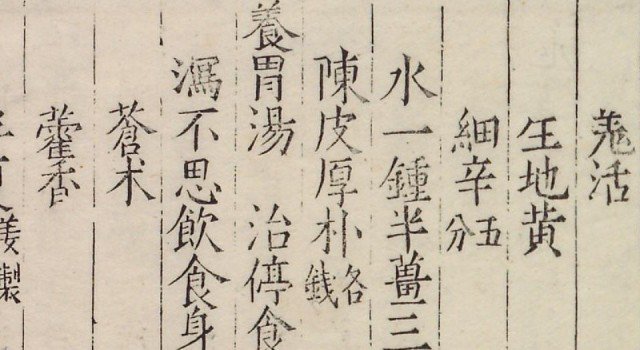 羗活
生地黃
細辛五分
水一鍾半薑三
陳皮厚朴各錢
養胃湯 治停食
瀉不思飲食身
蒼术
藿香
薑製